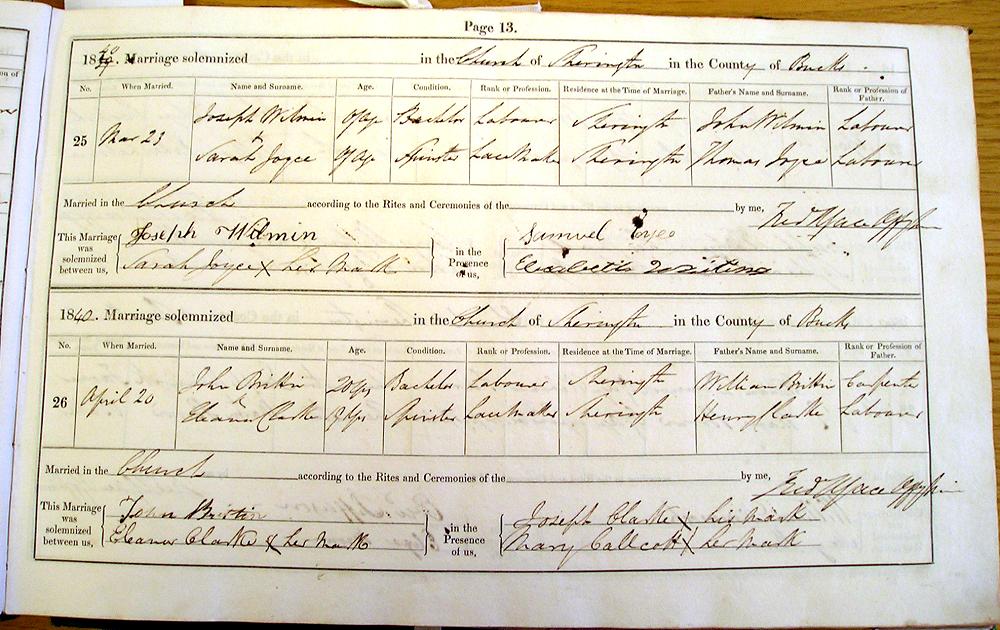 Page 13.
1840. Marriage solemnized in the Church of Sherington in the County of Bucks.
No. When Married. Name and Surname. Age. Condition. Rank or Profession. Residence at the Time of Marriage. Father's Name and Surname. Rank or Profession of Father.
25 Mar 23 Joseph Wilmin of age Bachelor Labourer Sherington John Wilmin Labourer
& Sarah Joyce of age Spinster Lace Maker Sherington Thomas Joyce Labourer
Married in the Church according to the Rites and Ceremonies of the by me,
This Marriage was solemnized between us, Joseph Wilmin in the Presence of us, Samuel Joyce
Sarah Joyce X her Mark Elizabeth
1840. Marriage solemnized in the Church of Sherington in the County of Bucks
No. When Married. Name and Surname. Age. Condition. Rank or Profession. Residence at the Time of Marriage. Father's Name and Surname. Rank or Profession of Father.
26 April 20 John Brittin 20 yrs Bachelor Labourer Sherington William Brittin Carpenter
& Eleanor Clarke yrs Spinster Lace Maker Sherington Henry Clarke Labourer
Married in the Church according to the Rites and Ceremonies of the by me,
This Marriage was solemnized between us, John Brittin in the Presence of us, Joseph Clarke X his Mark
Eleanor Clarke X her Mark Mary Callcott X her Mark